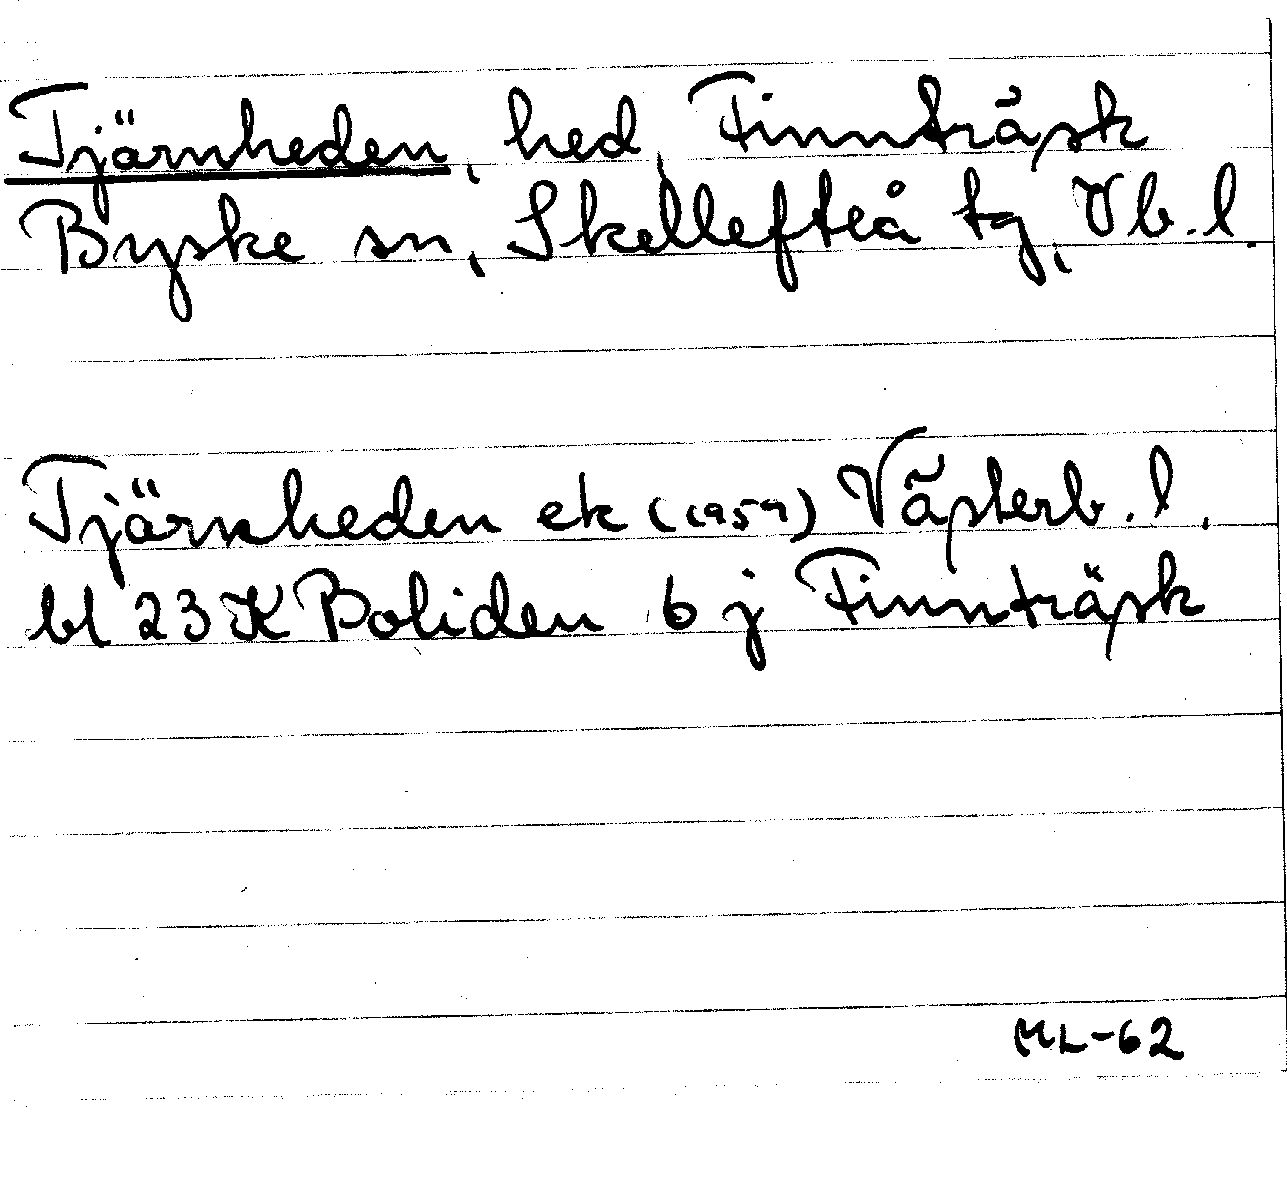 Tjärnheden, hed, Finnträsk
Byske sn, Skellefteå tg, Vb.l.
Tjärnheden ek (1959) Västerb. l.
bl 23 K Boliden 6 j Finnträsk
ML-62